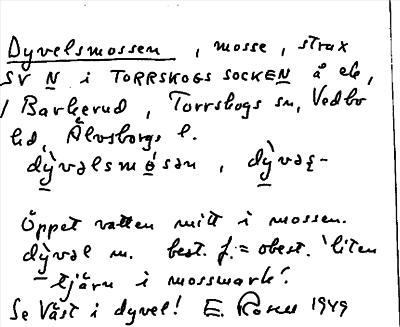 Dyvelsmossen, mosse, strax
SV N i TORRSKOGS SOCKEN å ek,
/ Barkerud, Torrskogs sn, Vedbo
hd, Älvsborgs l.
dỳvəlsmosən, dỳvəɽ-
Öppet vatten mitt i mossen.
dỳvəl m. best. f. = obest. 'liten
tjärn i mossmark'.
Se Väst i dyvel! E. 1949